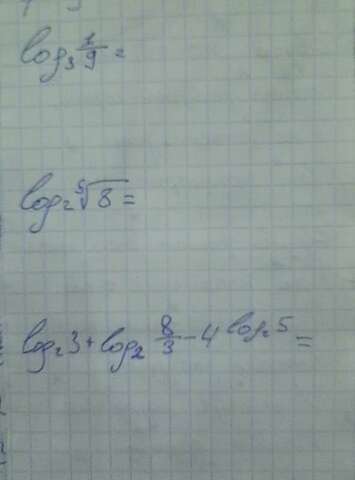 log₃ 1/9 =
log₂ ⁵√8 =
log₂ 3 + log₂ 8/3 - 4^(log₂ 5) =